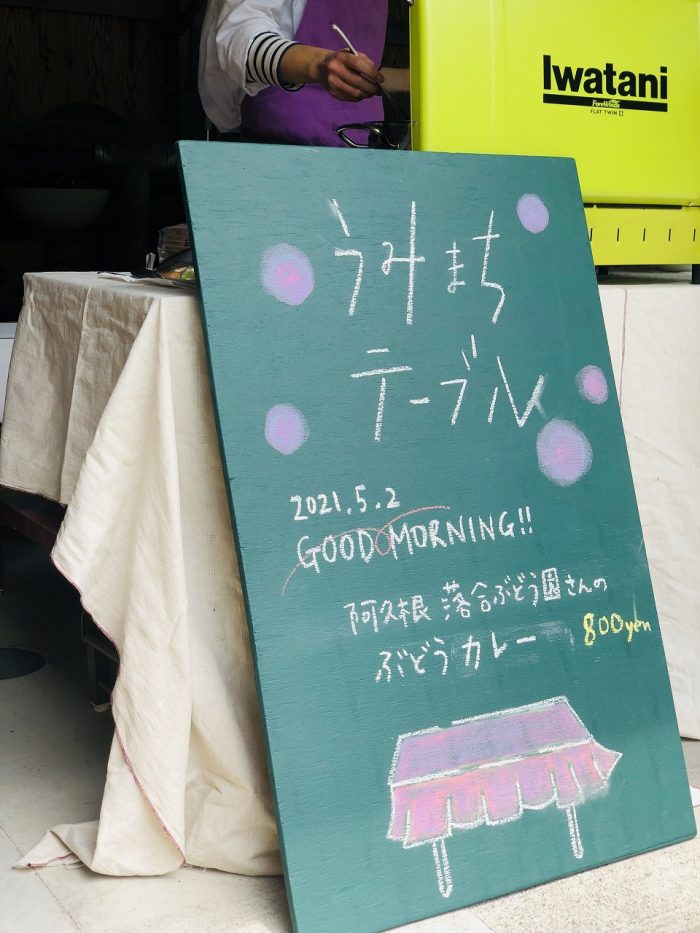 Iwatani
ForeWinds
FLAT TWIN II
うみまち
テーブル
2021.5.2
GOOD MORNING!!
阿久根 落合ぶどう園さんの
ぶどうカレー 800yen